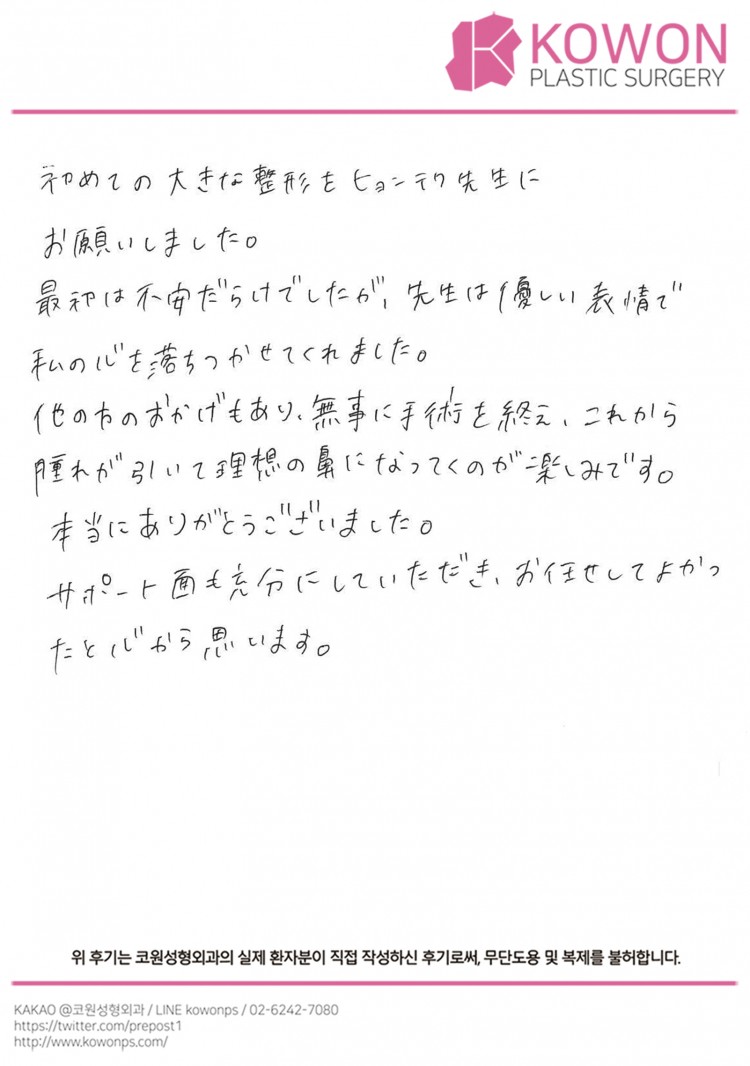 KOWON
PLASTIC SURGERY
初めての大きな整形をヒョンテク先生に
お願いしました。
最初は不安だらけでしたが、先生は優しい表情で
私の心を落ちつかせてくれました。
他の方のおかげもあり、無事に手術を終え、これから
腫れが引いて理想の鼻になってくのが楽しみです。
本当にありがとうございました。
サポート面も充分にしていただき、お任せしてよかっ
たと心から思います。
위 후기는 코원성형외과의 실제 환자분이 직접 작성하신 후기로써, 무단도용 및 복제를 불허합니다.
KAKAO @코원성형외과 / LINE kowonps / 02-6242-7080
https://twitter.com/prepost1
http://www.kowonps.com/